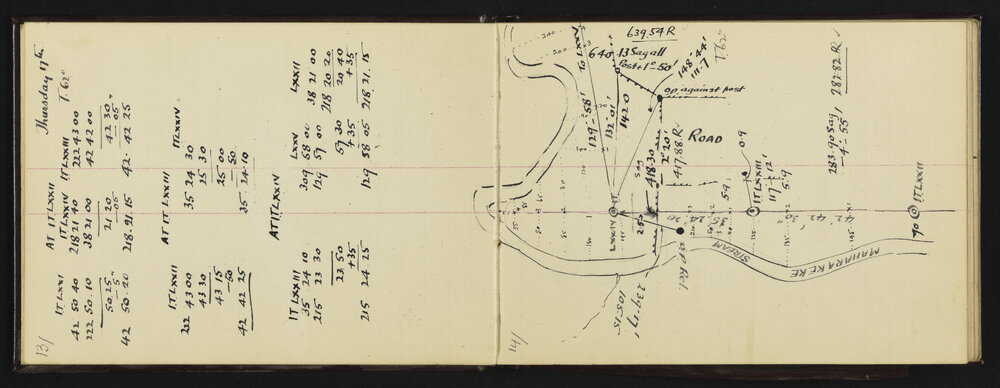 13/
Thursday 17th
T. 62°
AT IT LXXII
IT LXXI
42 50 40
222 50.10
50 25
—5"
42 50.20
IT LXXIV
218 21 40
38 21 00
21 20
—05
218.21.15
IT LXXIII
222 43 00
42 42 00
42 30
—05"
42.42 25
AT IT LXXIII
IT LXXII
222 43 00
43 30
43 15
—50
42 42 25
IT LXXIV
35 24 30
25 30
25 00
—50
35 24.10
AT IT LXXIV
IT LXXIII
35 24 10
215 23 30
23 50
+35
215 24 25
LXXV
309 58 00
129 57 00
57 30
+35
129 58 05
LXXII
38 21 00
218 20 20
20 40
+35
218 21.15
14/
639.54 R
640 13 Sag all
Post + 1° 50'
T. 62°
To LXXV
148' 22'
111.7
o.p. against post
129° 58'
132° 01'
1420
2° 20'
417.88 R
418.30
Sag
ROAD
0.9
5.9
IT LXXIII
117° 12'
5.9
283.90 Sag
—4° 55'
282.82 R
IT
LXXIV
250
35 24 20
42° 42' 30"
IT LXXII
70
o.p. Rd
239° 17'
105.15
STREAM
MAHARAKEKE